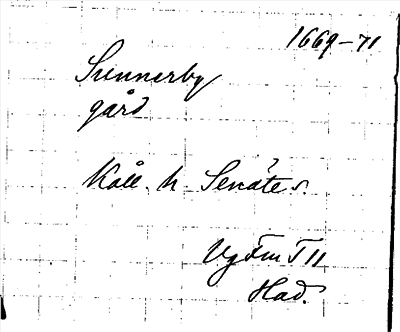 1669-71
Sunnerby
gård
Käll. h Senäte s.
Vgöm T 11
Had.